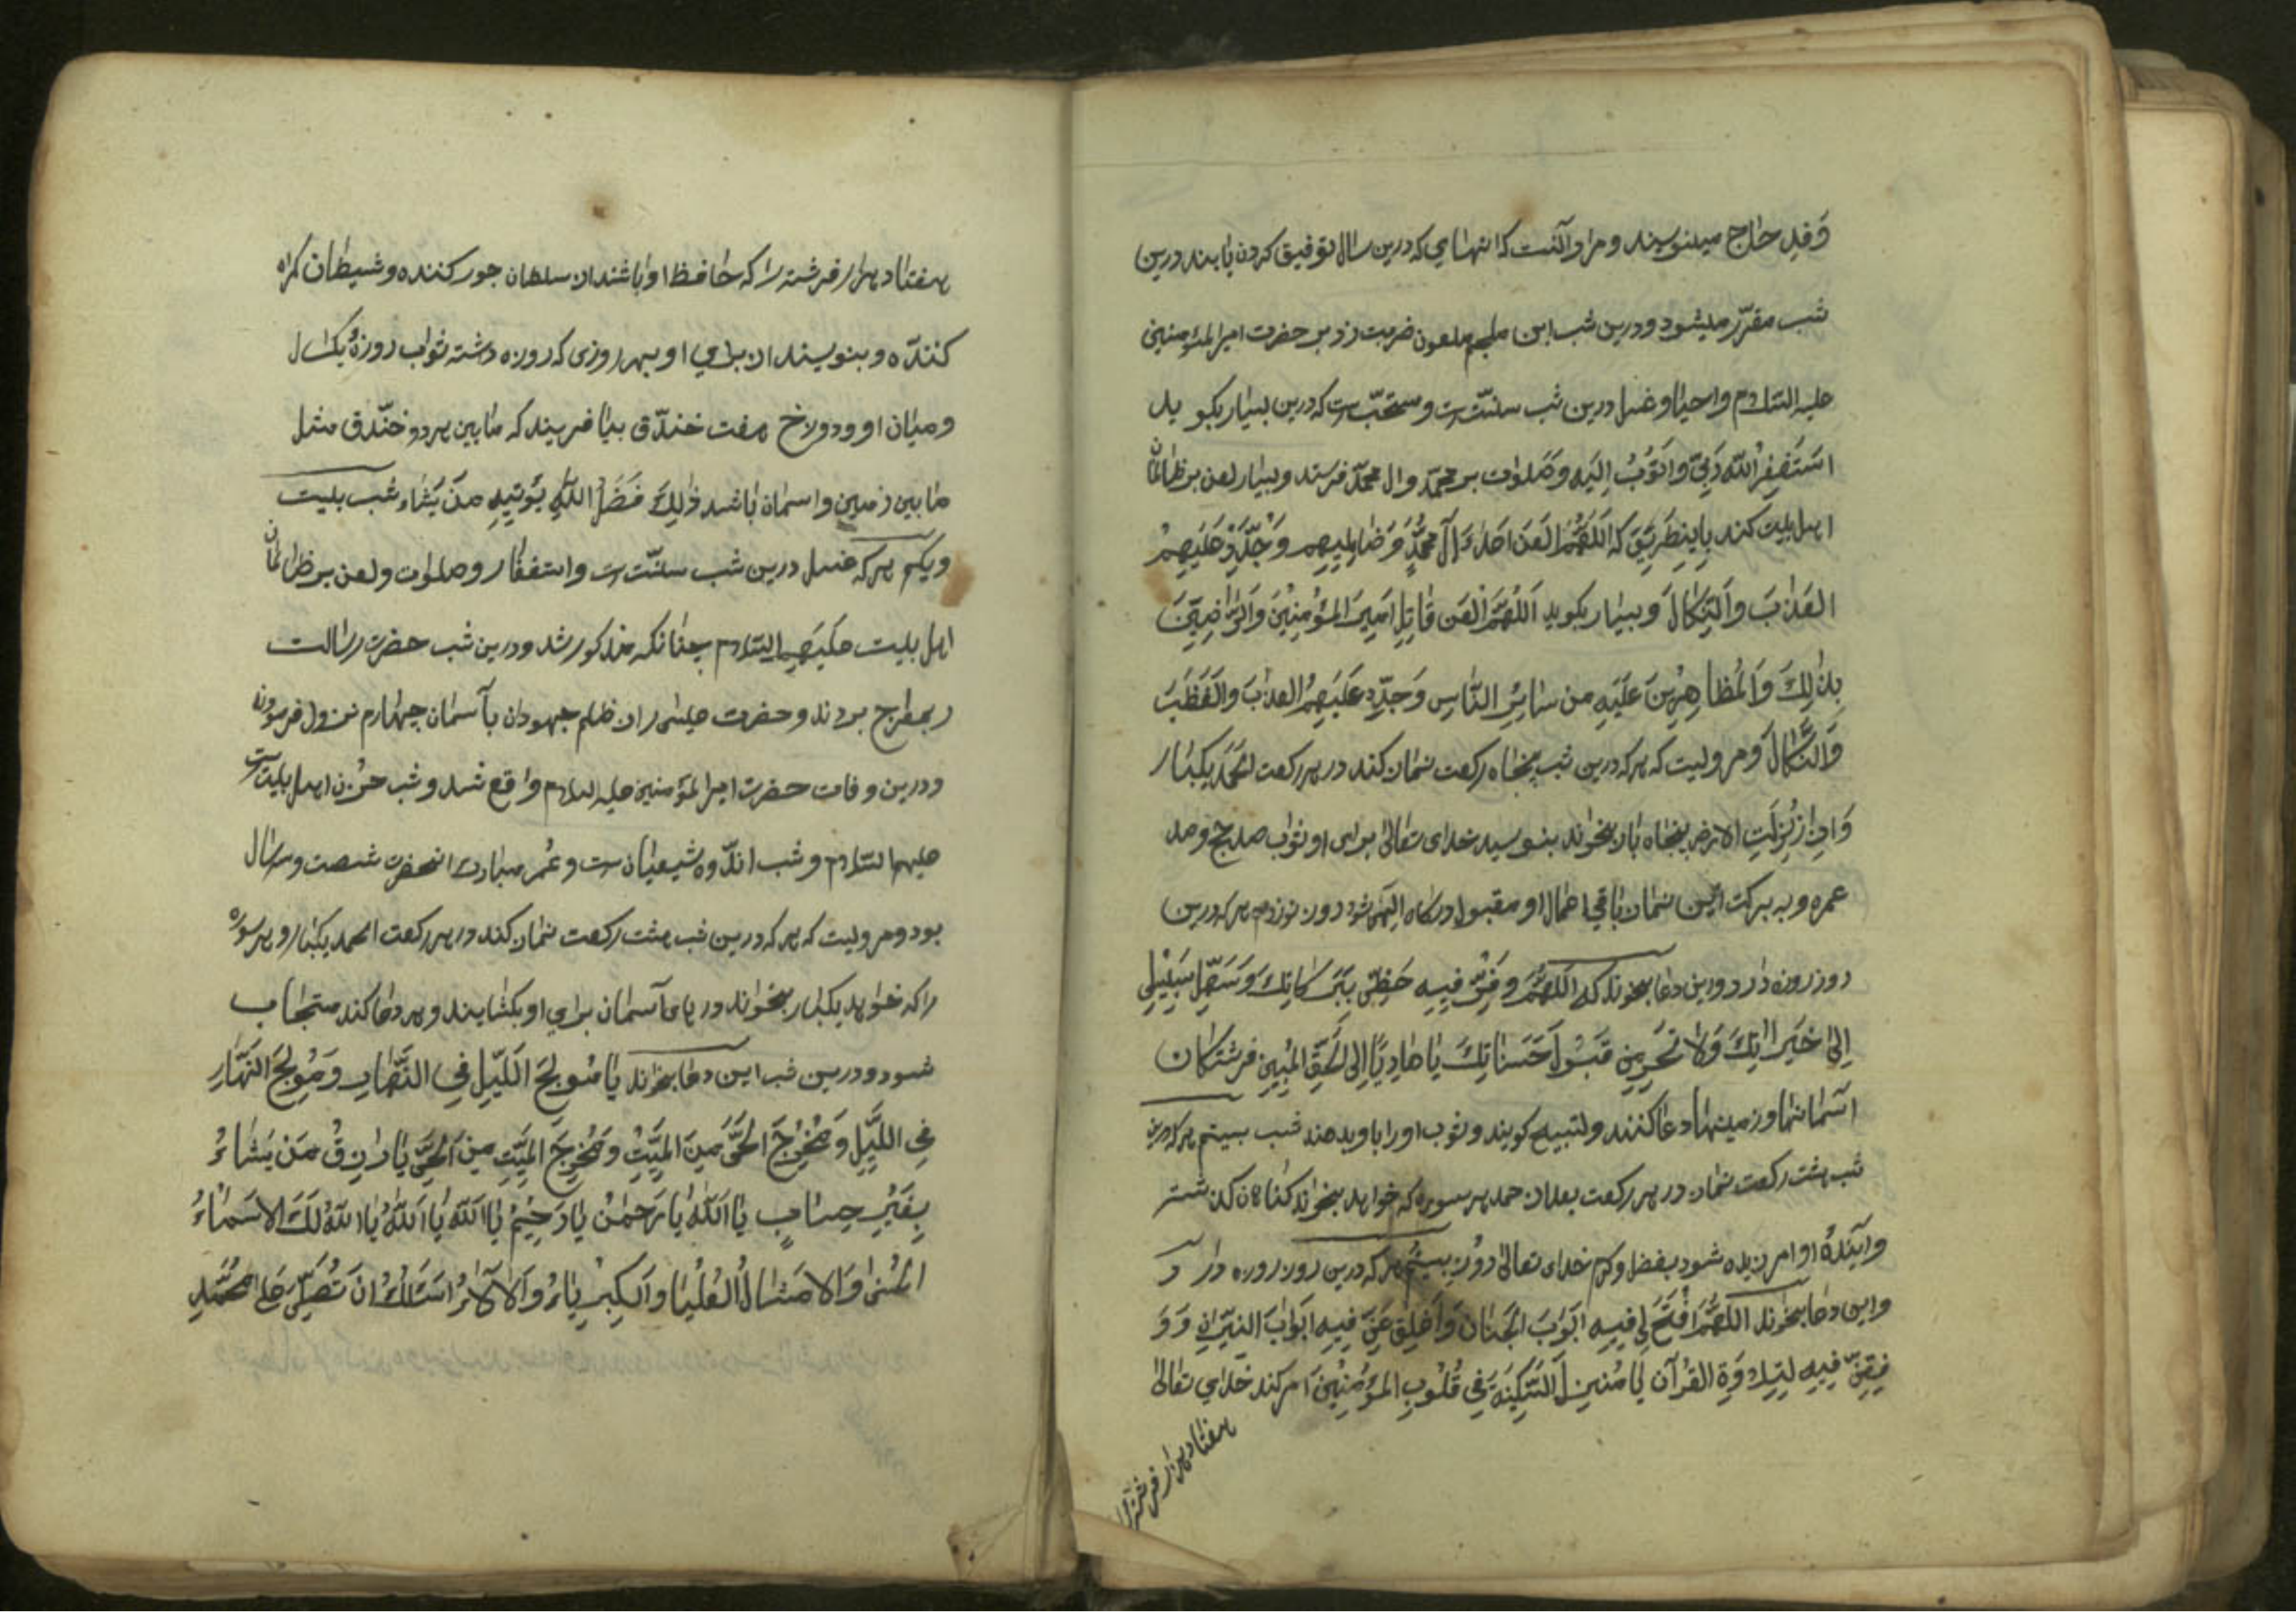 وَفد حاج مینویسند و مراد آنست که انهایي که درین سال توفیق کردن یابند درین
شب مقرّر میشود و درین شب ابن ملجم ملعون ضربت زد بر حضرت امیر المؤمنین
علیه السّلام و احیا و غسل درین شب سنّتست و مستحبّست که درین بسیار بکوید
اَستَغفِرُ اللّهَ رَبّی وَ اَتُوبُ اِلَیه و صَلوات بر محمّد و ال محمّد فرستد و بسیار لعن بر ظالمان
اهل بیت کند باینطریق که اَللّهُمَّ العَن اَعداءَ آلِ محمّدٍ وَ ظالِمیهِم وَ جَدِّد عَلَیهِمُ
العَذابَ وَ النَّکالَ و بسیار بکوید اَللّهُمَّ العَن قاتِلَ اَمیرِ المُؤمِنینَ وَ الرّاضِینَ
بِذلِكَ وَ المُظاهِرینَ عَلَیهِ من سائِرِ النّاسِ وَ جَدِّد عَلَیهِمُ العذابَ وَ الغَضَبَ
وَ النَّکالَ و مرویست که هر که درین شب پنجاه رکعت نماز کند در هر رکعت الحَمد یکبار
وَ اِذا زُلزِلَتِ الارض پنجاه بار بخواند بنویسد خدای تعالی برای او ثواب صد حج و صد
عمره و به برکت این نماز باقی اعمال او مقبول درکاه الهی شود روز نوزدهم هر که درین
روز روزه دارد و این دعا بخواند که اَللّهُمَّ وَفِّر فیهِ حَظّی بِبَرَکاتِكَ وَ سَهِّل سَبیلی
اِلی خَیراتِكَ وَ لا تَحرِمنی قَبُولَ حَسَناتِكَ یا هادِیًا اِلی الحَقِّ المُبین فرشتکان
آسمانها و زمینها دعا کنند و تسبیح کویند و ثوب او را باو بدهند شب بیستم هر که درین
شب هشت رکعت نماز در هر رکعت بعد از حمد هر سوره که خواهد بخواند کناهان کذشته
و آینده او امرزیده شود بفضل و کرم خدای تعالی روز بیستم هر که درین روز روزه دارد
و این دعا بخواند اَللّهُمَّ افتَح لی فیهِ اَبوابَ الجِنان وَ اَغلِق عَنّی فیهِ اَبوابَ النّیرانِ وَ وَ
فِقنی فیهِ لِتِلاوَةِ القُرآن یا مُنزِلَ السَّکینَةِ فی قُلُوبِ المُؤمِنینَ امر کند خدای تعالی
هفتاد هزار فرشته را
هفتاد هزار فرشته را که حافظ او باشند از سلطان جور کننده و شیطان کمراه
کننده و بنویسند از برای او بهر روزی که روزه داشته ثواب روزهٔ یکسال
و میان او و دوزخ هفت خندق بیافریند که ما بین هر دو خندق مثل
ما بین زمین و اسمان باشد ذٰلِكَ فَضلُ اللّهِ یُؤتِیهِ مَن یَشاء شب بیست
و یکم هر که غسل درین شب سنّتست و استغفار و صلوات و لعن بر ظالمان
اهل بیت علیهم السّلام چنانکه مذکور شد و درین شب حضرت رسالت
ر بمعراج بردند و حضرت عیسی را از ظلم جهودان بآسمان چهارم نزول فرمودند
و درین وفات حضرت امیر المؤمنین علیه السلام واقع شد و شب حُزن اهل بیتست
علیهم السّلام و شب اندوه شیعیانست و عُمر مبارك انحضرت شصت و سه سال
بود و مرویست که هر که درین شب هشت رکعت نماز کند در هر رکعت الحمد یکبار و هر سوره
را که خواهد یکبار بخواند درهای آسمان برای او بکشایند و هر دعا کند مستجاب
شود و درین شب این دعا بخواند یا مُولِجَ اللَّیلِ فِی النَّهارِ وَ مُولِجَ النَّهارِ
فِی اللَّیلِ وَ مُخرِجَ الحَیِّ مِنَ المَیِّتِ وَ مُخرِجَ المَیِّتِ مِنَ الحَیِّ یا رازِقُ مَن یَشاءُ
بِغَیرِ حِسابٍ یا اَللّهُ یا رَحمٰنُ یا رَحیمُ یا اَللّهُ یا اَللّهُ یا اَللّهُ لَكَ الاَسماءُ
الحُسنی وَ الاَمثالُ العُلیا وَ الکِبرِیاءُ وَ الآلاءُ اَسئَلُكَ اَن تُصَلِّیَ عَلی مُحَمَّدٍ